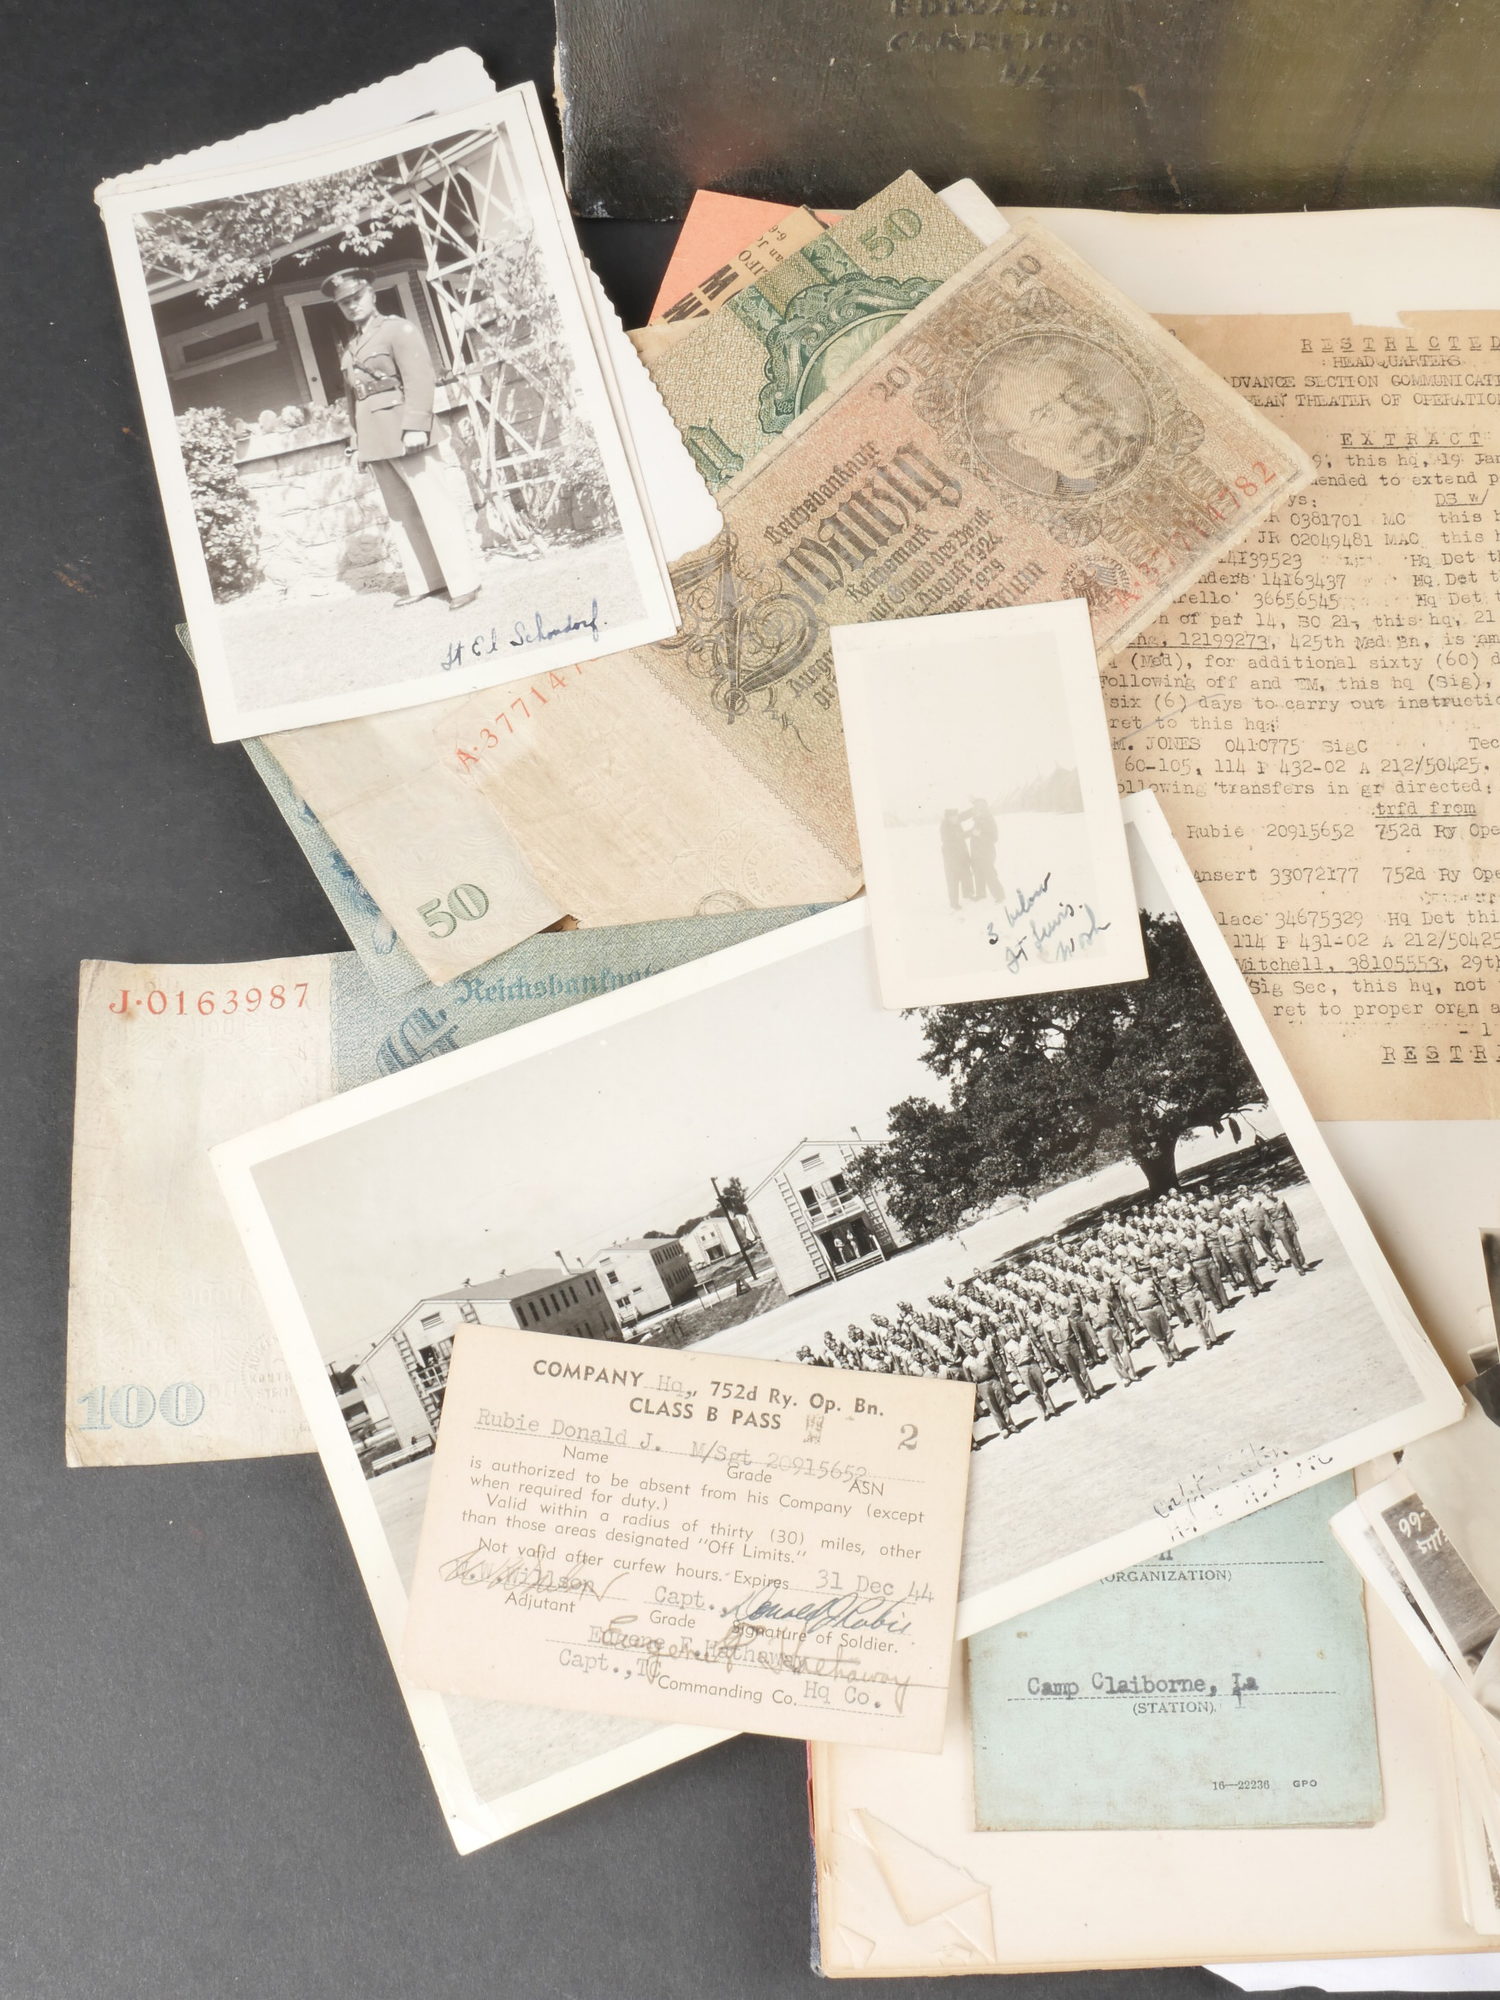 EDWARD
50
20
20
Reichsbanknote
Zwanzig
Reichsmark
A·3771478
50
J·0163987
Reichsbanknote
100
Lt Ed Schondorf.
3 below
Ft Lewis.
Wash
RESTRICTED
HEADQUARTERS
ADVANCE SECTION COMMUNICATI
PEAN THEATER OF OPERATION
EXTRACT
9, this hq, 19 Jan
ended to extend p
ys: DS w/
0381701 MC this h
JR 02049481 MAC this h
14139523 Hq Det th
nders 14163437 Hq Det t
rello 36656545 Hq Det t
of par 14, SO 21, this hq, 21
12199273, 425th Med Bn, is am
(Med), for additional sixty (60) d
Following off and EM, this hq (Sig),
six (6) days to carry out instructio
ret to this hq:
M. JONES 0410775 SigC Tec
60-105, 114 P 432-02 A 212/50425.
ollowing transfers in gr directed:
trfd from
Rubie 20915652 752d Ry Ope
Ansert 33072177 752d Ry Ope
lace 34675329 Hq Det thi
114 P 431-02 A 212/50425
Mitchell, 38105553, 29th
Sig Sec, this hq, not
ret to proper orgn a
- 1
RESTRI
COMPANY Hq., 752d Ry. Op. Bn.
CLASS B PASS 2
Rubie Donald J. M/Sgt 20915652
Name Grade ASN
is authorized to be absent from his Company (except
when required for duty.)
Valid within a radius of thirty (30) miles, other
than those areas designated "Off Limits."
Not valid after curfew hours. Expires 31 Dec 44
Capt., Donald J Rubie
Adjutant Grade Signature of Soldier.
Eugene F. Hathaway
Capt., TC Commanding Co. Hq Co.
(ORGANIZATION)
Camp Claiborne, La
(STATION)
16—22236 GPO